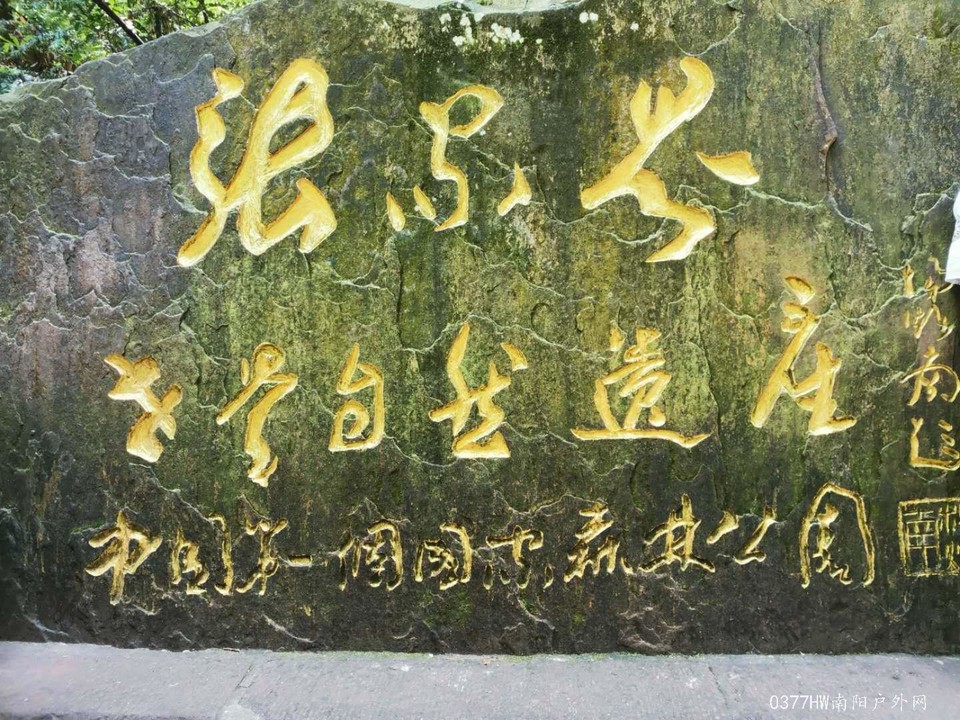 张家界
世界自然遗产
中国第一個國家森林公园
0377HW南阳户外网